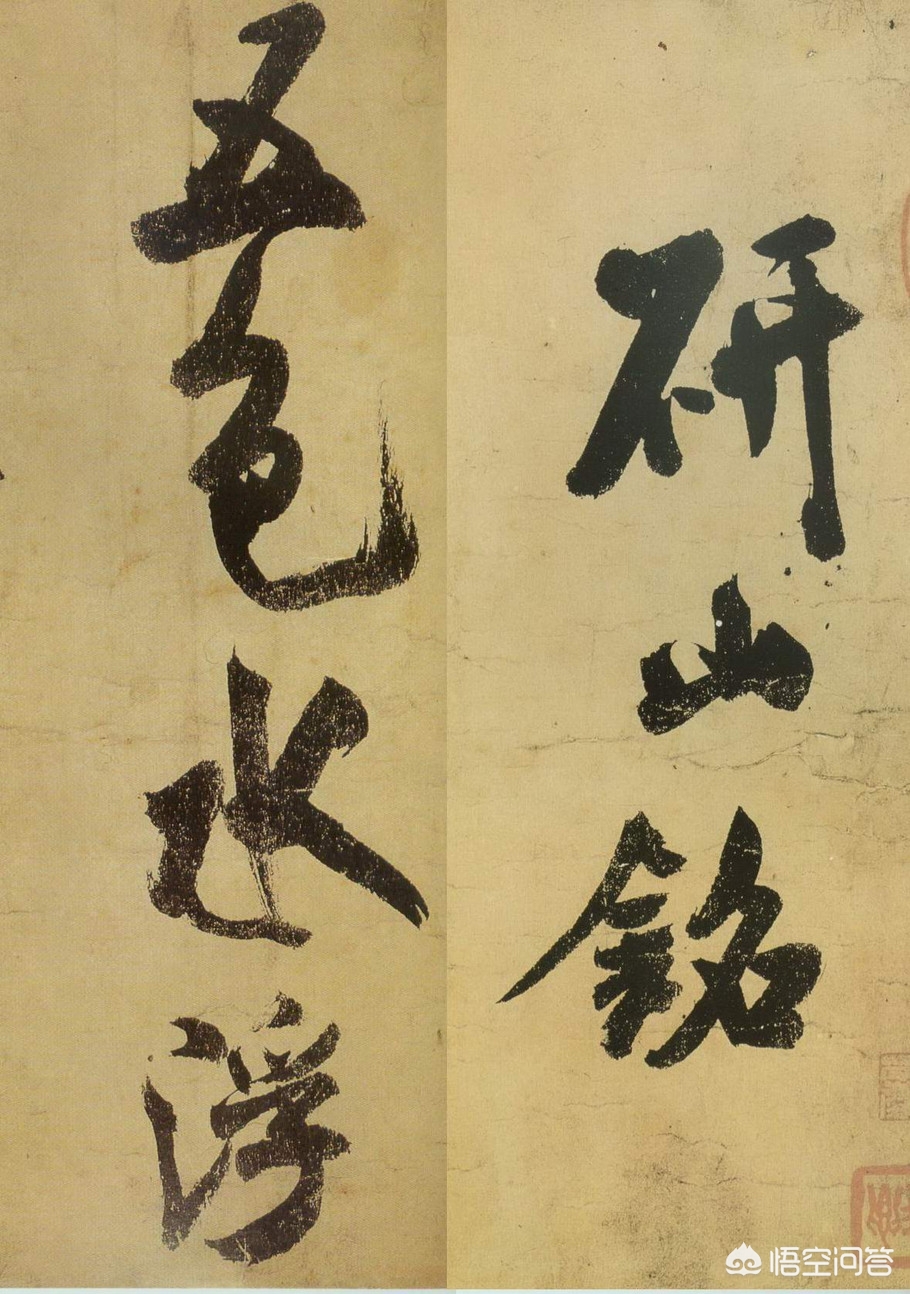 研山銘
五色水浮
悟空问答